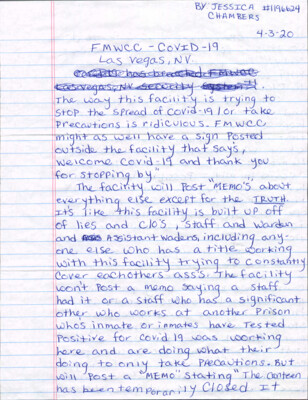 BY: JESSICA #1196624
CHAMBERS
4-3-20
FMWCC - COVID-19
Las Vegas, NV.
The way this facility is trying to
stop the spread of Covid-19/or take
precautions is ridiculous. FMWCC
might as well have a sign posted
outside the facility that says,
welcome Covid-19 and thank you
for stopping by."
The facility will post "MEMO'S" about
everything else except for the TRUTH.
It's like this facility is built up off
of lies and C/O'S, Staff and Warden
and Assistant waders, including any-
one else who has a title working
with this facility trying to constantly
cover eachothers ass's. The facility
won't post a memo saying a staff
had it or a staff who has a significant
other who works at another Prison
who's inmate or inmates have tested
Positive for covid 19 was working
here and are doing what their
doing to only take precautions. But
will post a "MEMO" stating "The canteen
has been temporarily closed. It